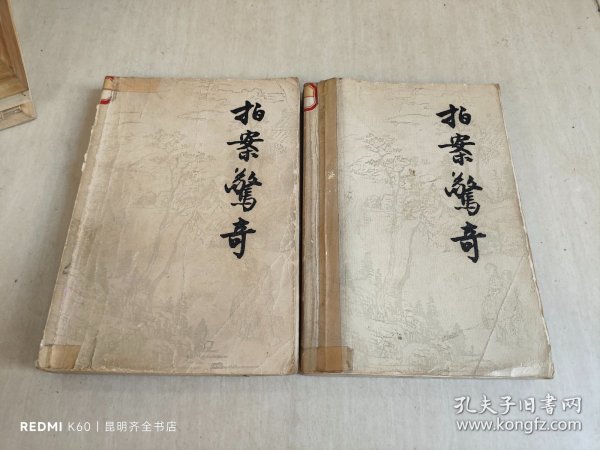 拍案驚奇
拍案驚奇
REDMI K60 | 昆明齐全书店
孔夫子旧书网
www.kongfz.com